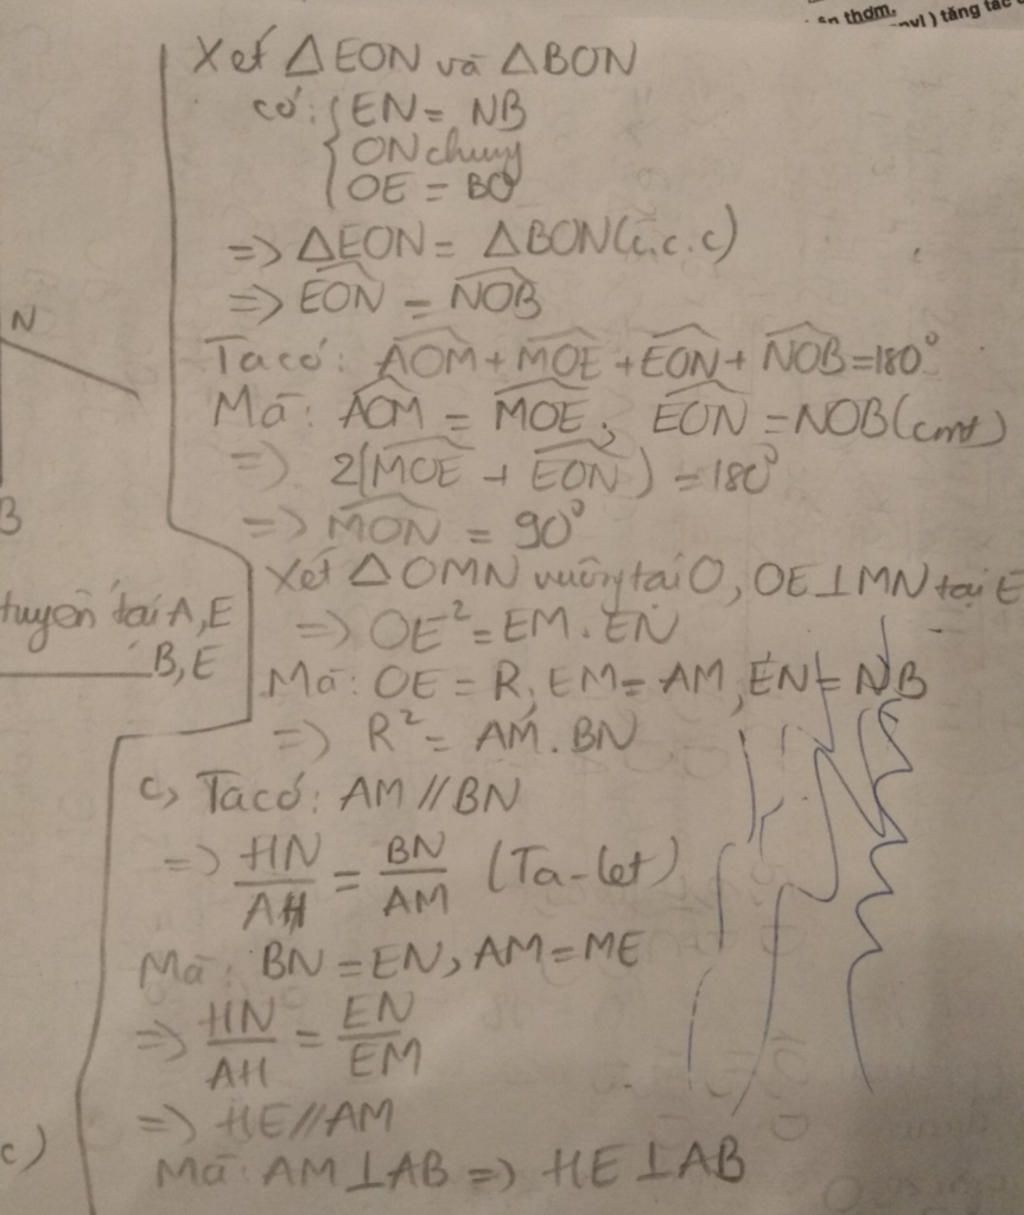 ên thơm.
nyl ) tăng tác
Xét △EON và △BON
có: { EN = NB
ON chung
OE = BO
=> △EON = △BON (c.c.c)
=> EON = NOB
Ta có: AOM + MOE + EON + NOB = 180°
Mà: AOM = MOE; EON = NOB (cmt)
=> 2(MOE + EON) = 180°
=> MON = 90°
Xét △OMN vuông tại O, OE⊥MN tại E
=> OE² = EM . EN
Mà: OE = R, EM = AM, EN = NB
=> R² = AM . BN
c, Ta có: AM // BN
=> HN/AH = BN/AM (Ta-let)
Mà: BN = EN, AM = ME
=> HN/AH = EN/EM
=> HE // AM
Mà: AM ⊥ AB => HE ⊥ AB
N
B
tuyến tại A, E
B, E
c)